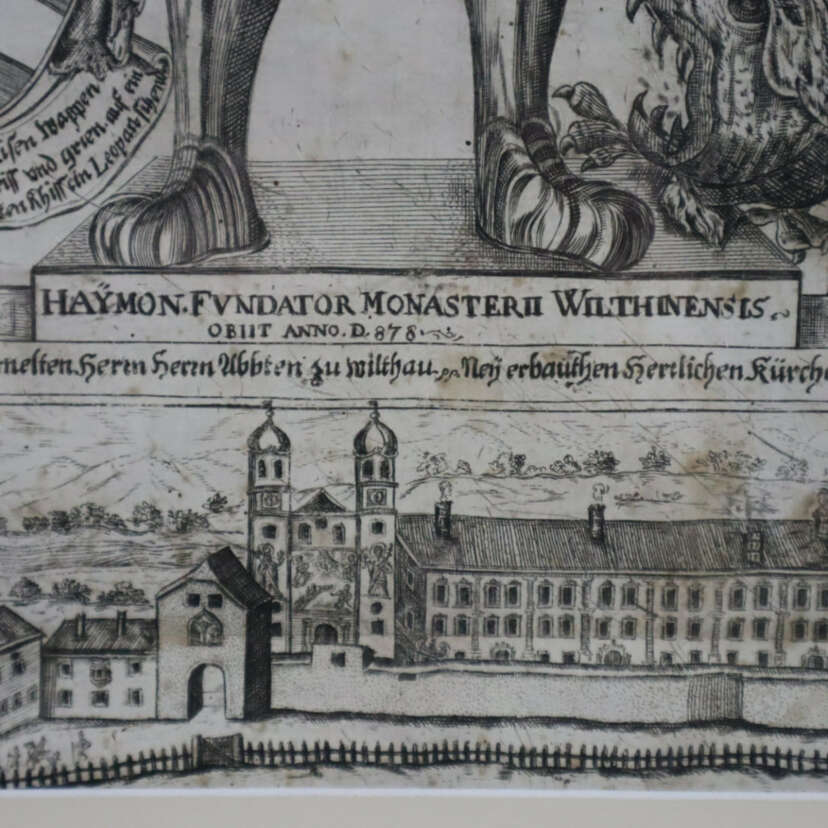 isen wappen
riff vnd grien auf ein
ten Khiss ein Leopart sitzend
HAŸMON. FVNDATOR MONASTERII WILTHINENSIS
OBIIT ANNO. D. 878
melten Herrn Herrn Abbten zu wilthau Neÿ erbauthen Herrlichen Kürche